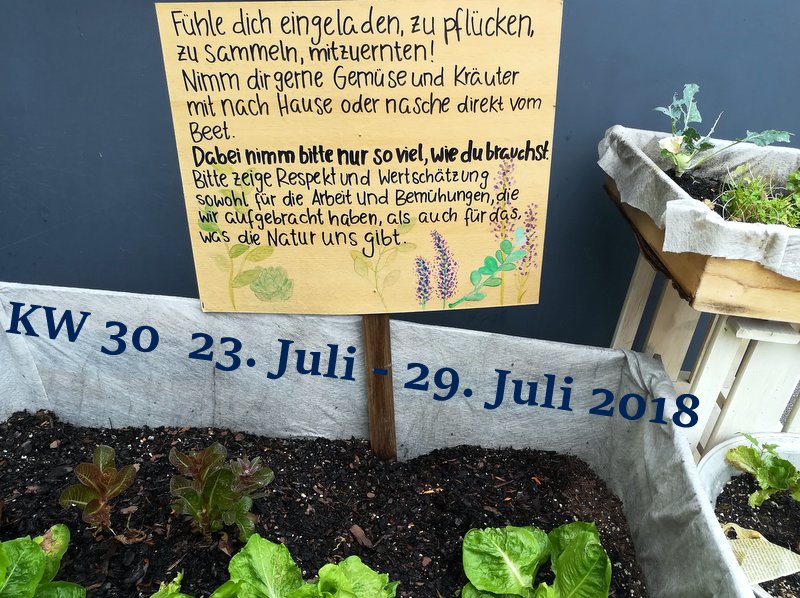 Fühle dich eingeladen, zu pflücken,
zu sammeln, mitzuernten!
Nimm dir gerne Gemüse und Kräuter
mit nach Hause oder nasche direkt vom
Beet.
Dabei nimm bitte nur so viel, wie du brauchst.
Bitte zeige Respekt und Wertschätzung
sowohl für die Arbeit und Bemühungen, die
wir aufgebracht haben, als auch für das,
was die Natur uns gibt.
KW 30 23. Juli - 29. Juli 2018